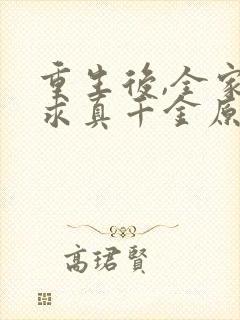 重生後,全家
求真千金原
高珺賢